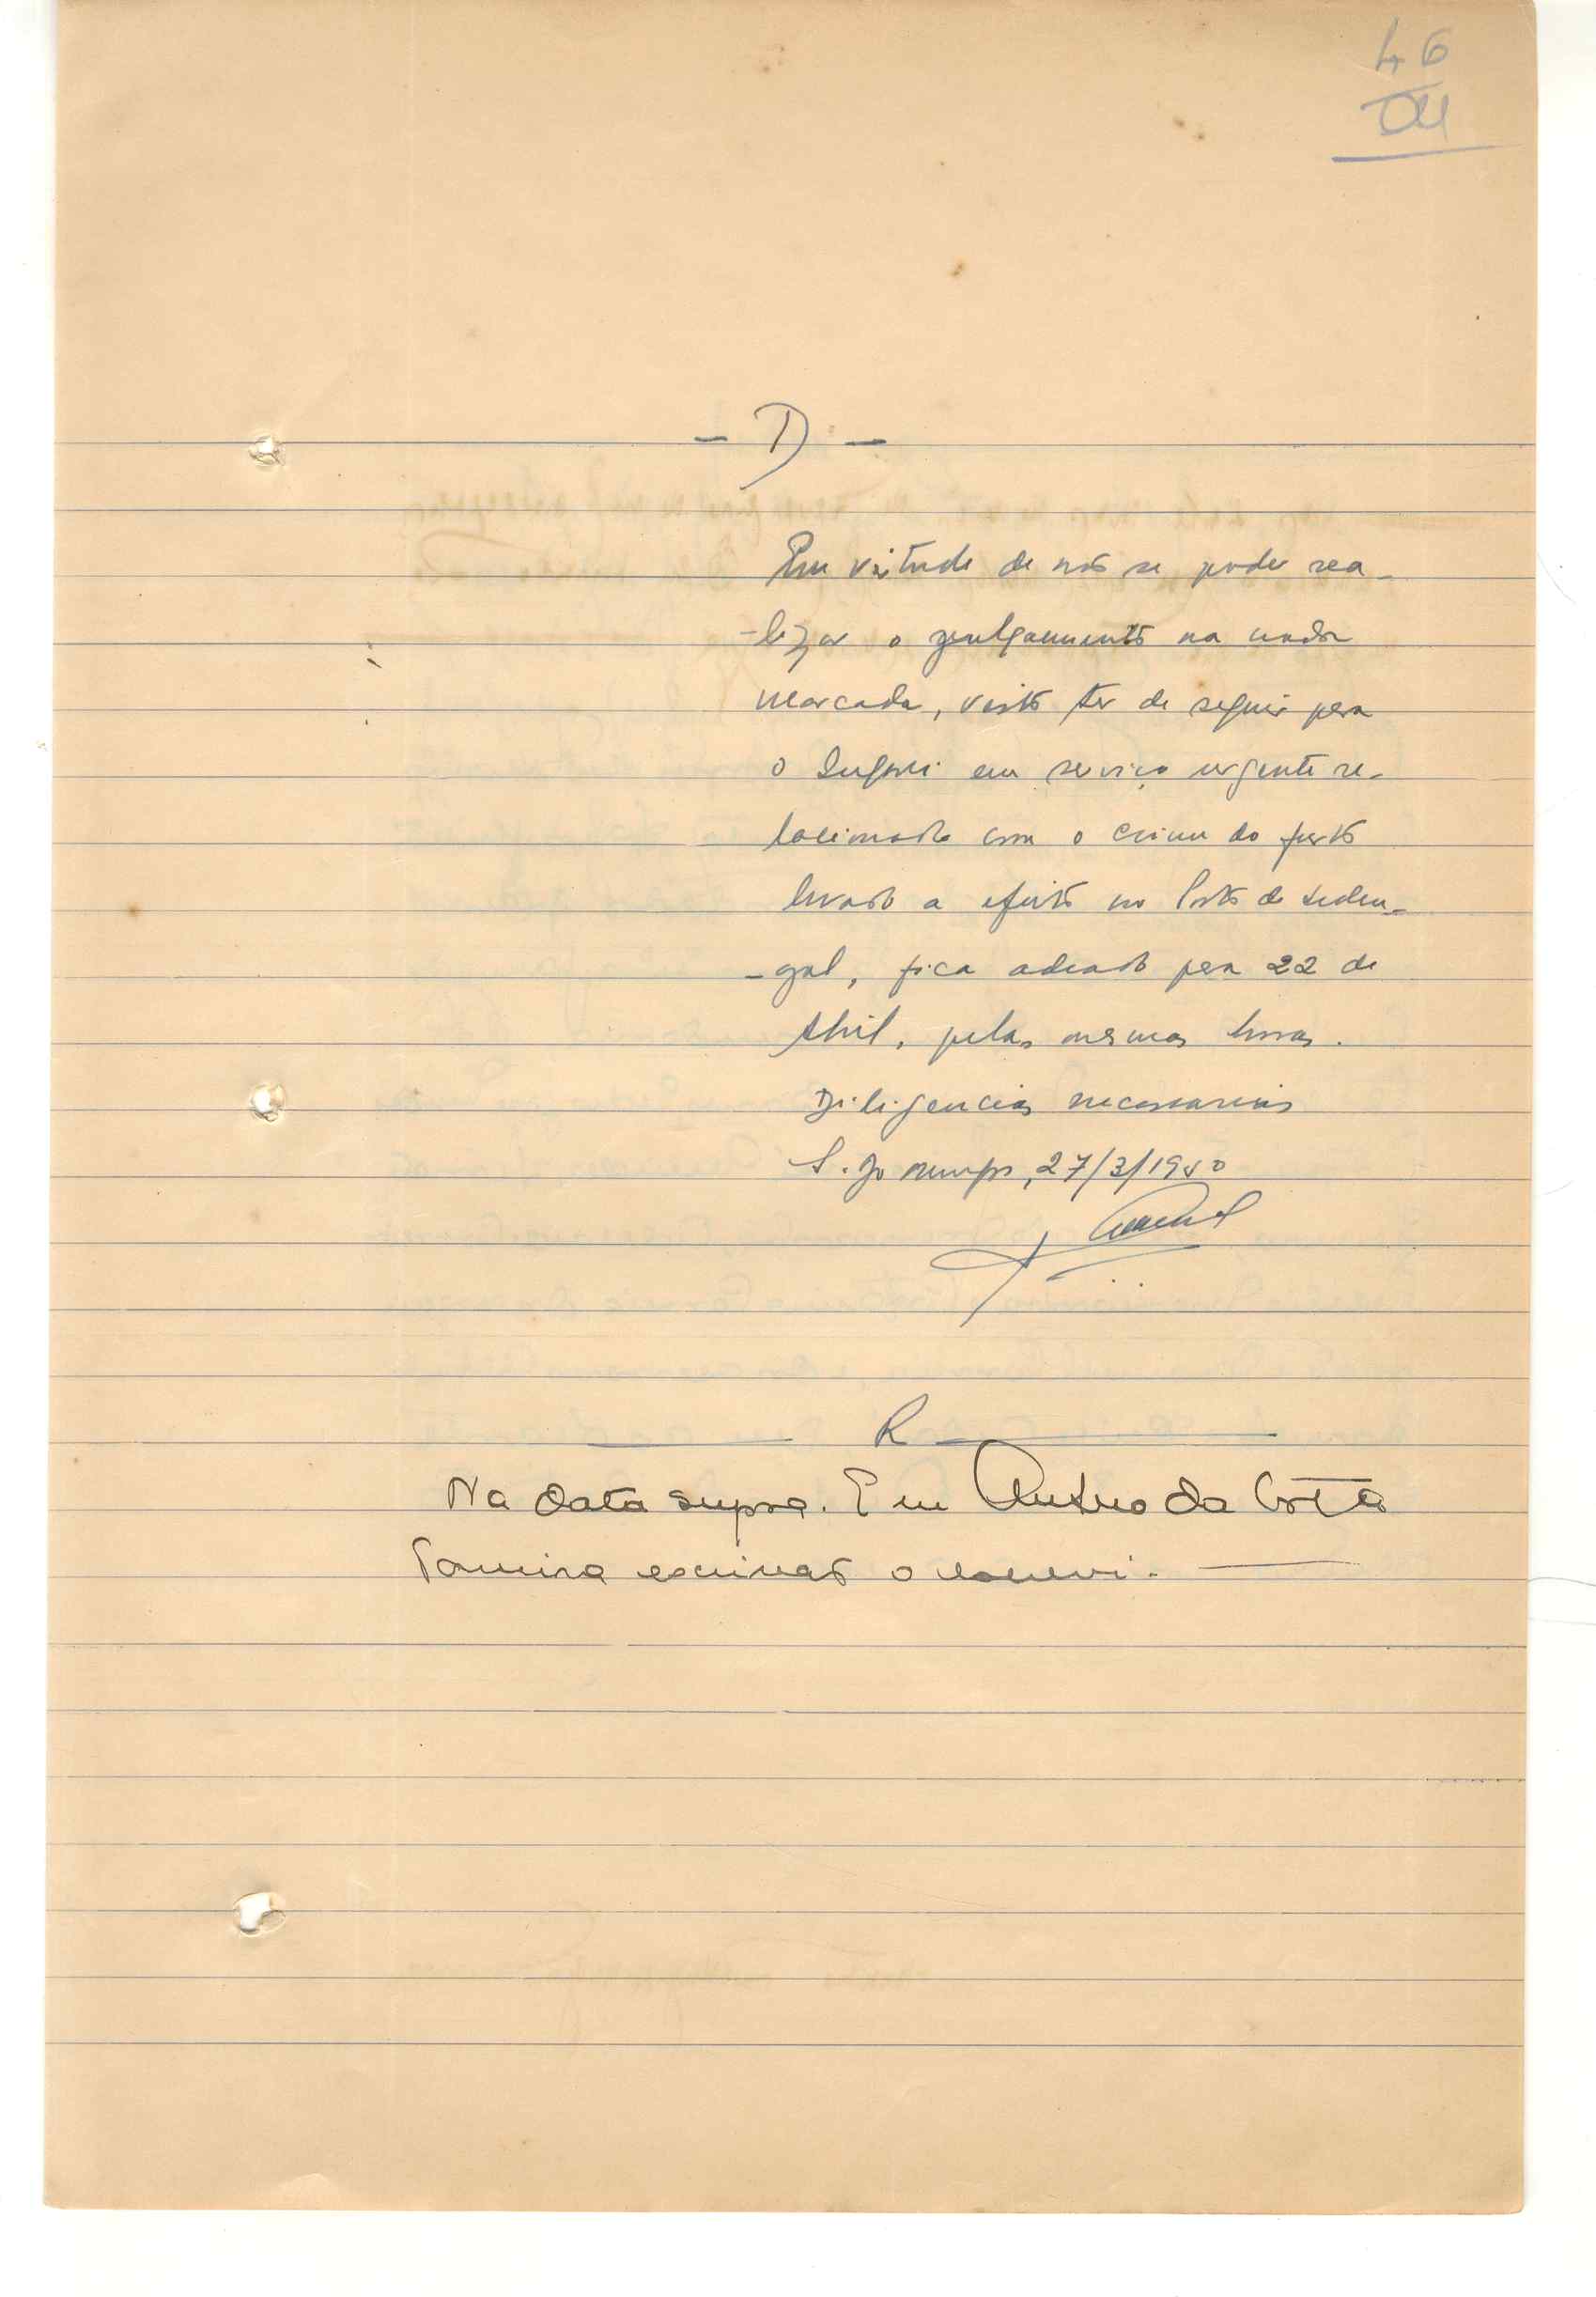 46
- D -
Em virtude de não se poder rea-
-lizar o julgamento na
marcada, visto ter de seguir para
o em serviço urgente re-
lacionado com o crime do furto
levado a efeito no Posto de Seden-
-gal, fica adiado para 22 de
Abril, pelas mesmas horas.
Diligencias necessarias
S. Domingos, 27/3/1950
R
Na data supra. E eu da Costa
escrivão o escrevi.